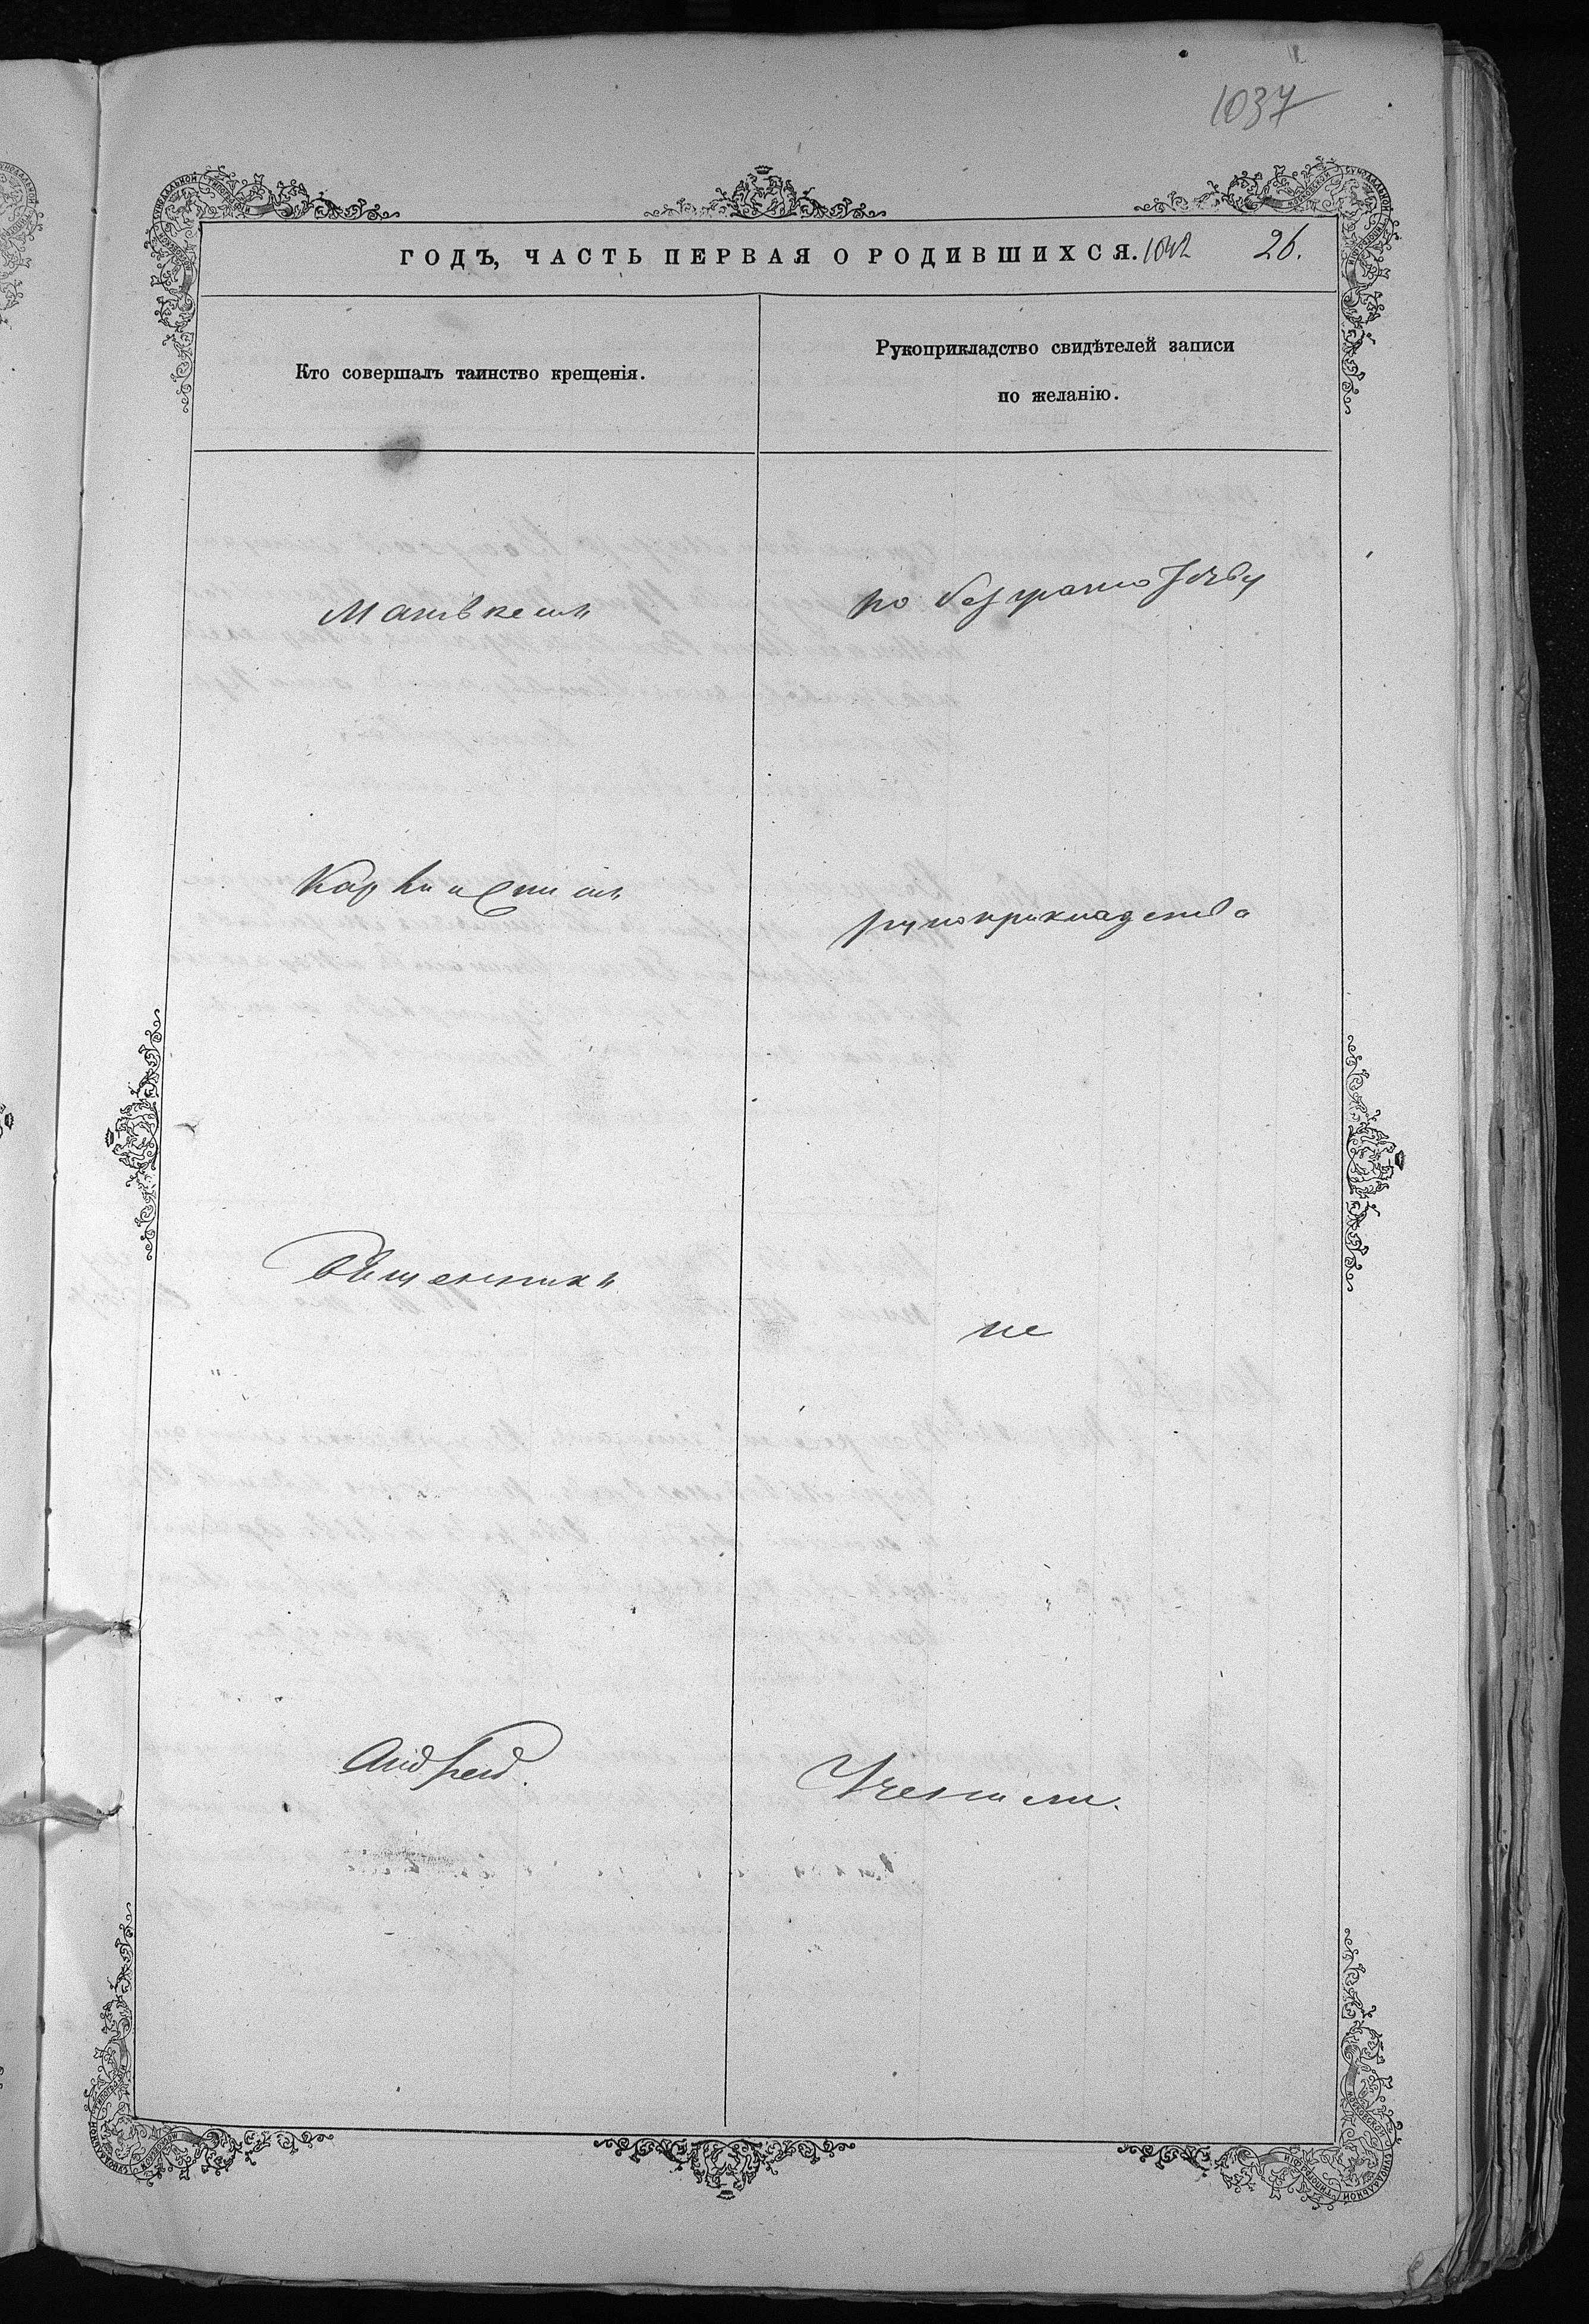 1037
ГОДЪ, ЧАСТЬ ПЕРВАЯ О РОДИВШИХСЯ. 1042 26.
Кто совершалъ таинство крещенія.
Рукоприкладство свидѣтелей записи
по желанію.
по безграмотству
рукоприкладства
Священникъ
не
Андрей.
Учинили.